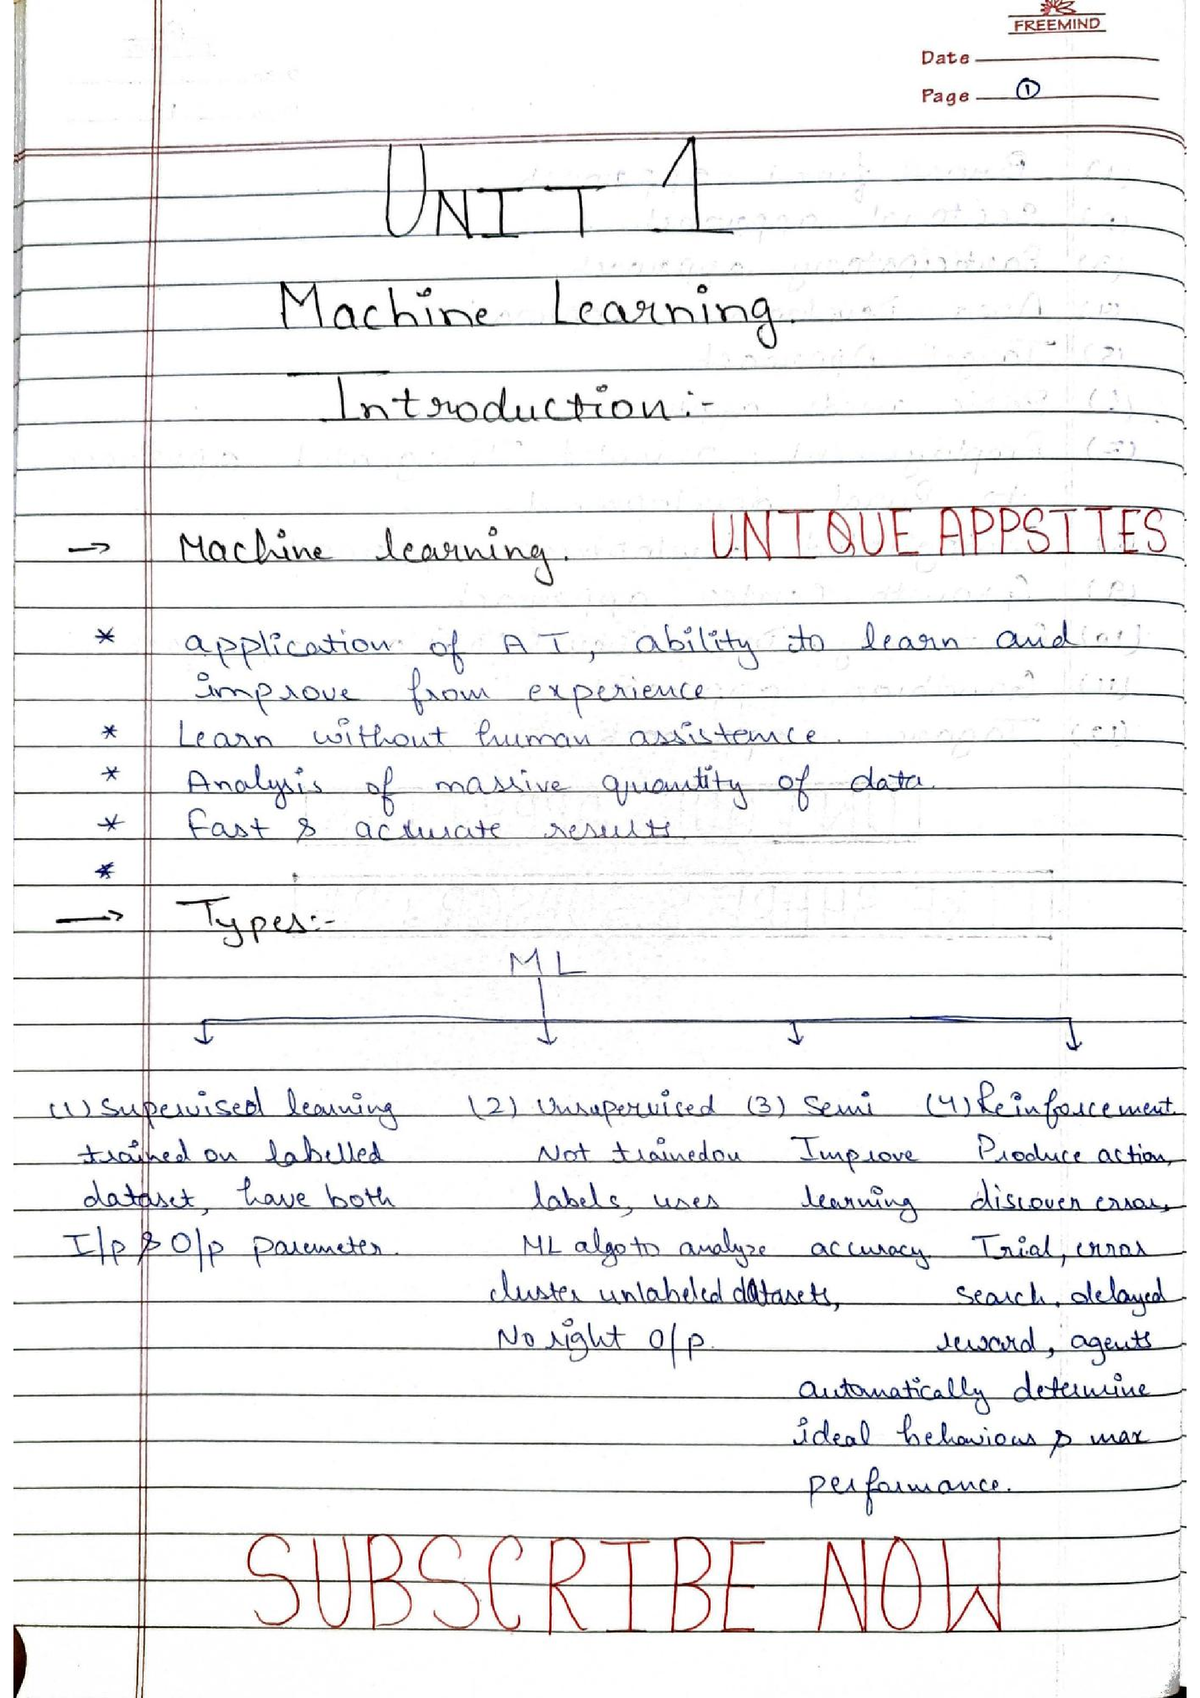 FREEMIND
Date
Page 1
UNIT 1
Machine Learning
Introduction:-
→ Machine learning. UNIQUE APPSITES
* application of AI, ability to learn and
improve from experience
* Learn without human assistence.
* Analysis of massive quantity of data.
* fast & accurate results
*
→ Types:-
ML
(1) Supervised learning
trained on labelled
dataset, have both
I/p & O/p parameter.
(2) Unsupervised
Not trained on
labels, uses
ML algo to analyze
cluster unlabeled datasets,
No right O/p.
(3) Semi
Improve
learning
accuracy
(4) Reinforcement
Produce action,
discover error,
Trial, error
search, delayed
reward, agents
automatically determine
ideal behaviour & max
performance.
SUBSCRIBE NOW